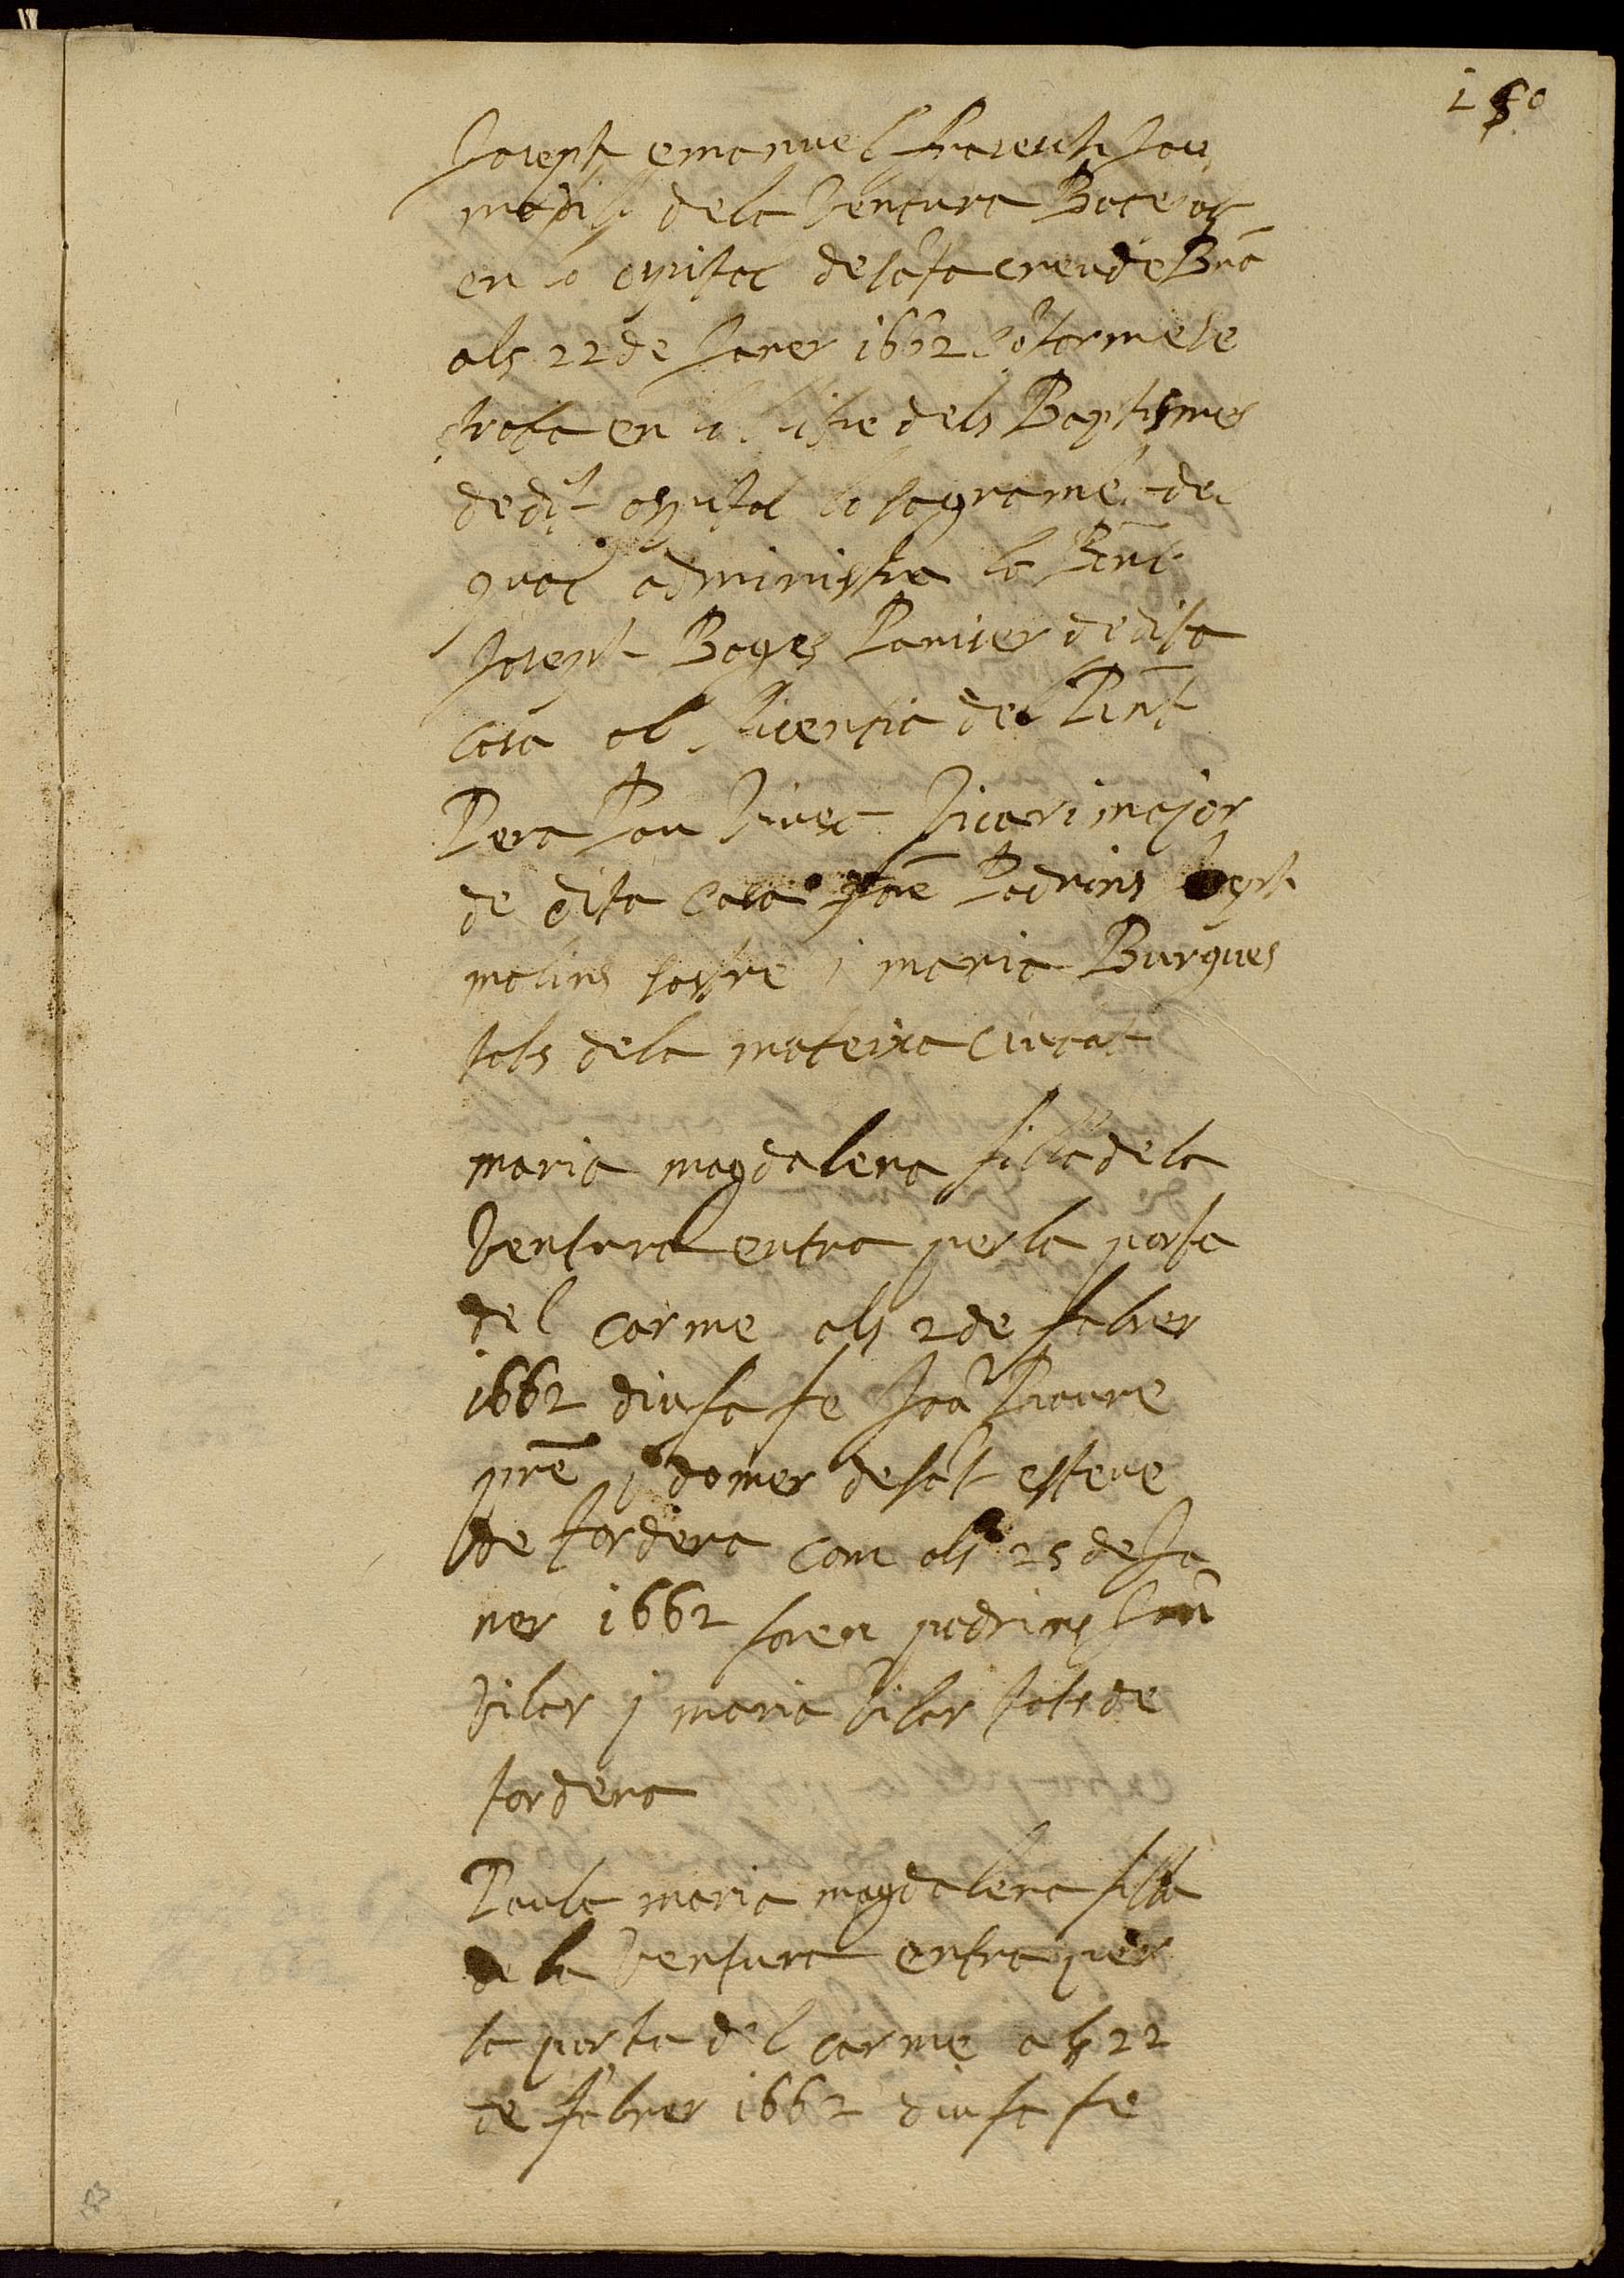 150
Joseph emanuel fransesch Jau
madil dela Ventura Batejat
en lo ospital de sãta creu de Bña
als 22 de Janer 1662 cõforme se
troba en lo llibre dels Baptismes
de dit ospital lo sagramẽt del
qual administra lo Rnt
Joseph Bages Panicer de dita
casa ab llicentia del Rnt
Pera Pau Vivet Vicari major
de dita casa forẽ Padrins
molins sastre i maria Burgues
tots dela mateixa ciutat
maria magdalena filla dela
Ventura entra per la porta
del carme als 2 de febrer
1662 diu sa fe Joã Viaure
pre y domer de sãt esteve
de tordera com als 25 de Ja
ner 1662 foren padrins Joan
Vilar y maria Vilar tots de
tordera
Paula maria magdalena filla
de la Ventura entra per
la porta del carme als 22
de febrer 1662 diu sa fe